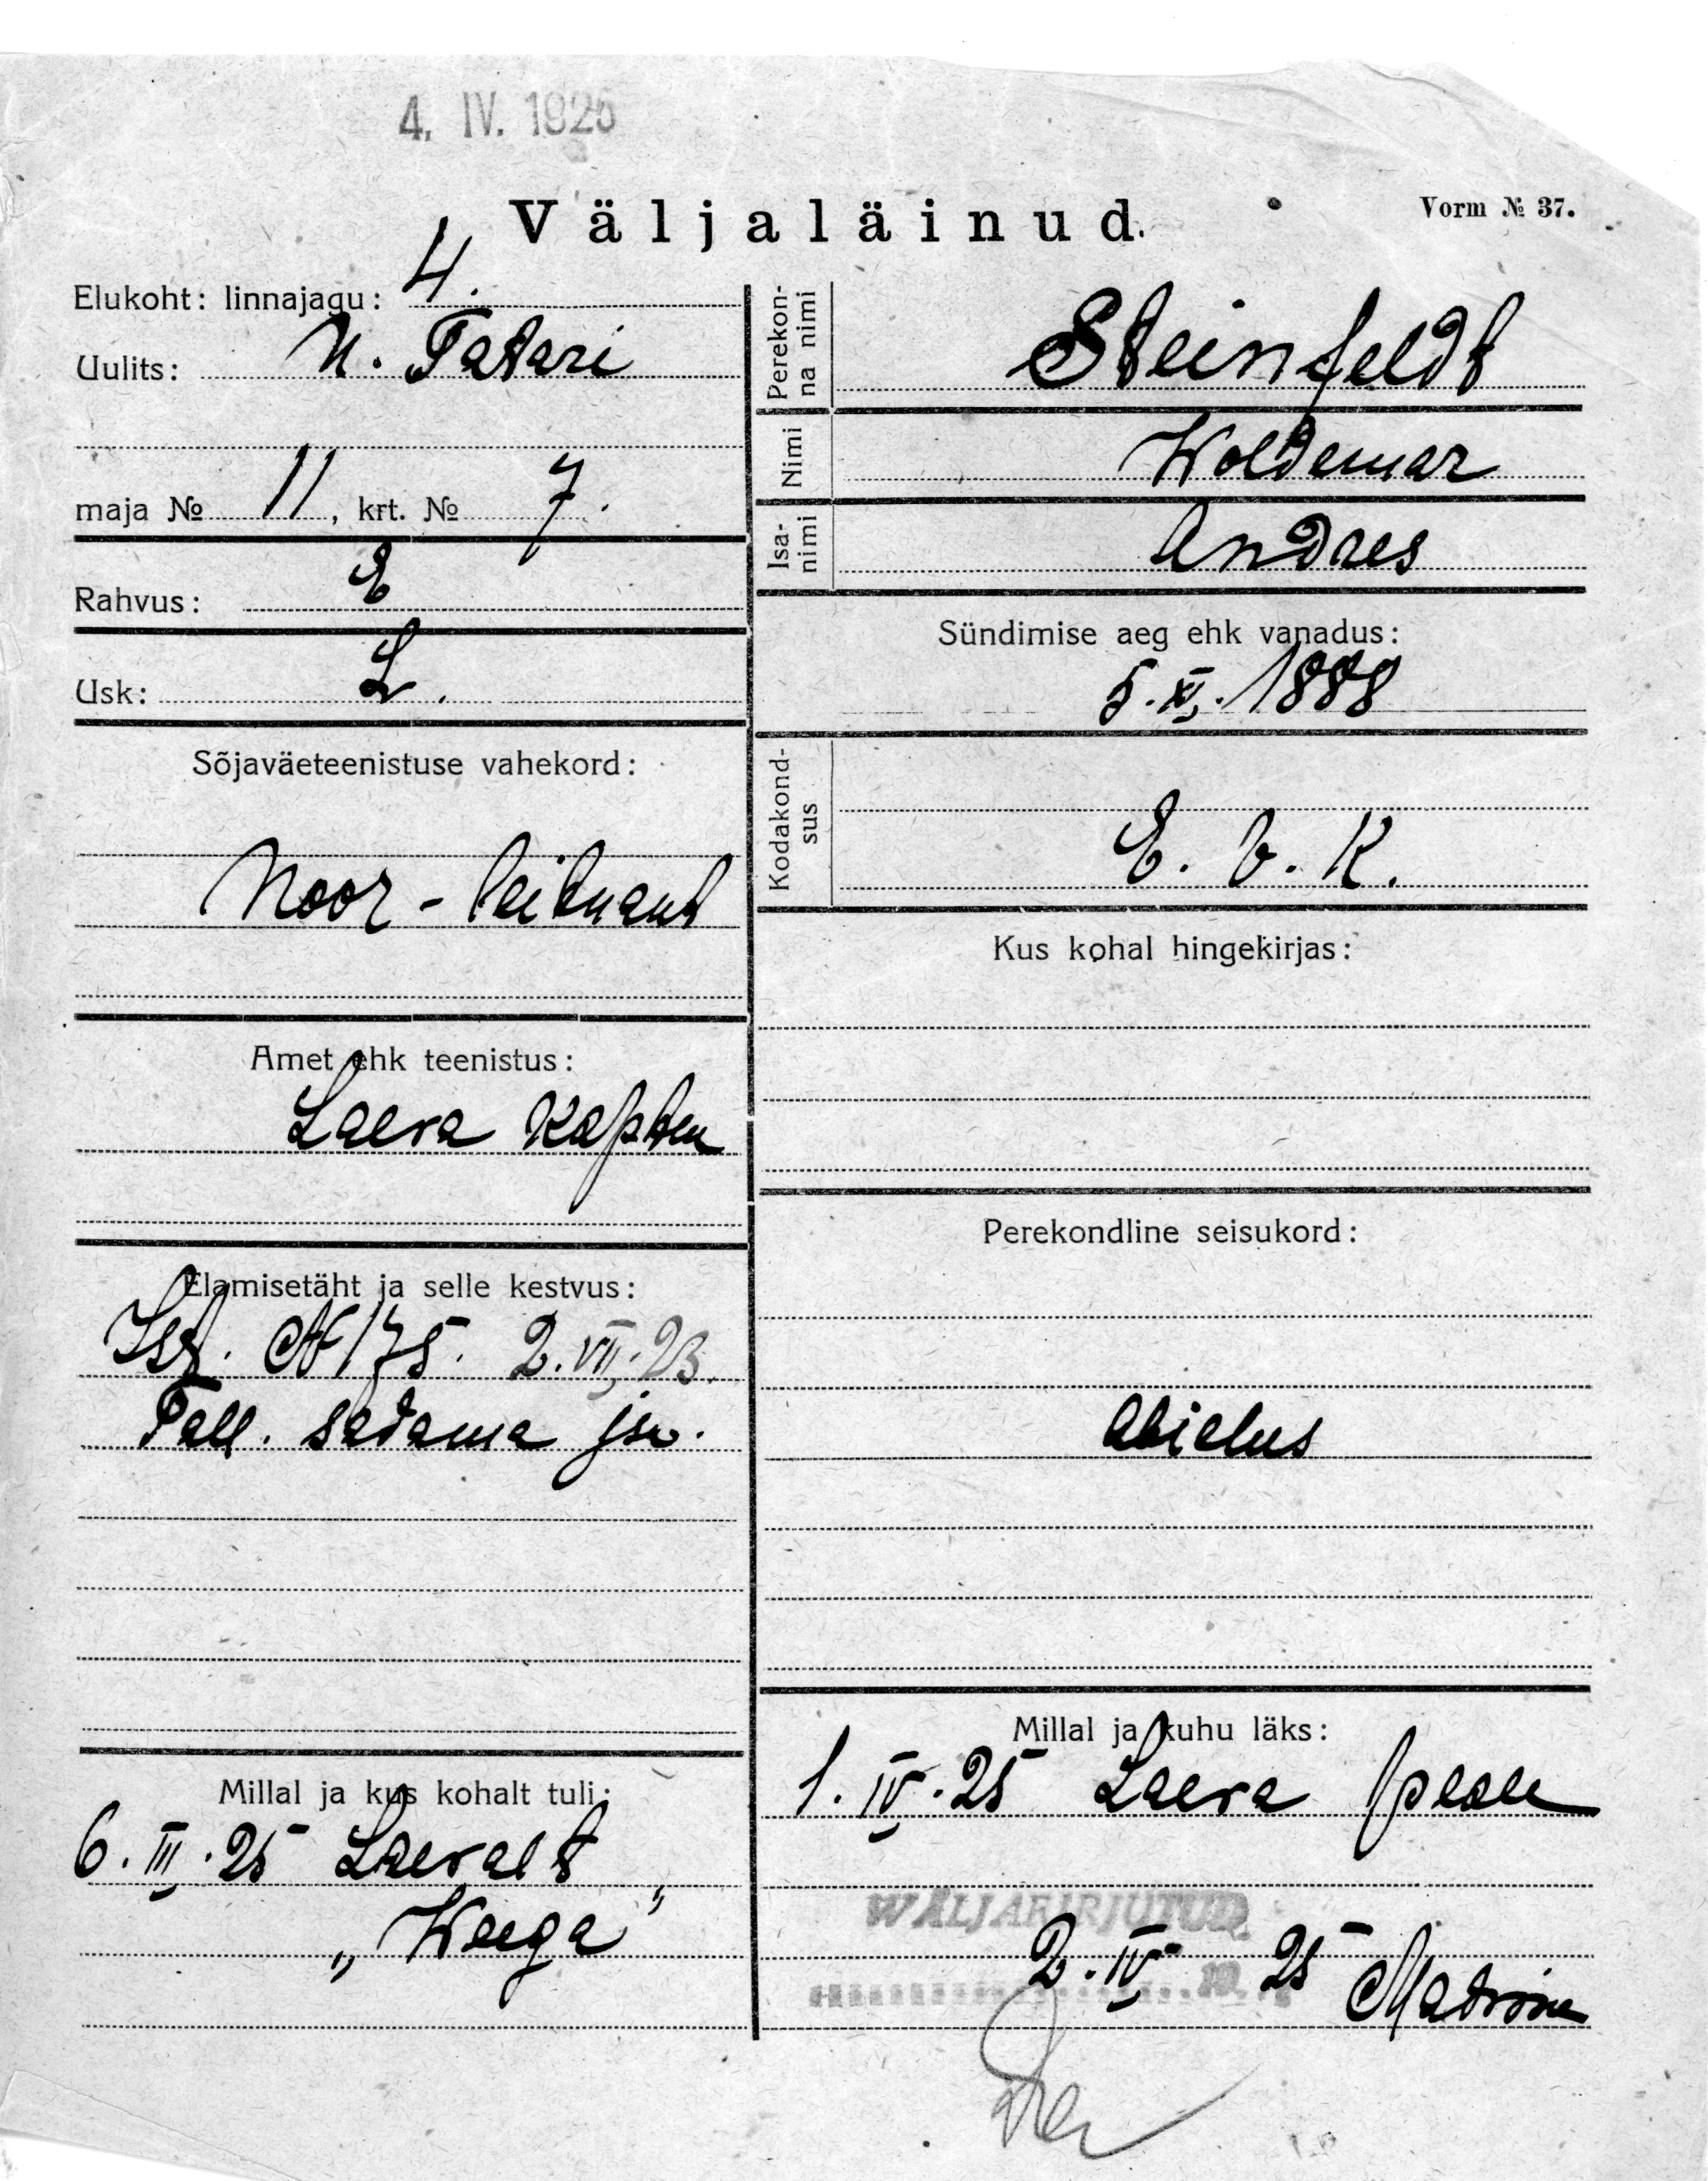 4. IV. 1925
Väljaläinud.
Vorm № 37.
Elukoht: linnajagu: 4.
Uulits: U. Tatari
maja № 11, krt. № 7.
Rahvus: E
Usk: L.
Sõjaväeteenistuse vahekord:
Noor-leitnant
Amet ehk teenistus:
Laeva kapten
Elamisetäht ja selle kestvus:
Ist. № 175. 2.VII.23.
Tall. sadama jsk.
Millal ja kus kohalt tuli:
6.III.25 Laevalt
„Weega"
Perekonna nimi Steinfeldt
Nimi Woldemar
Isanimi Andres
Sündimise aeg ehk vanadus:
5.XI.1888
Kodakondsus
E.V.K.
Kus kohal hingekirjas:
Perekondline seisukord:
Abielus
Millal ja kuhu läks:
1.IV.25 Laeva peale
WÄLJAKIRJUTUD
2.IV 25